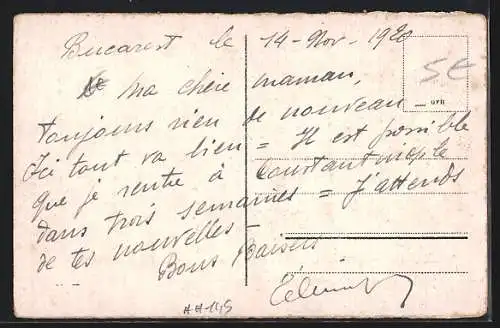 Bucarest le 14 - Nov - 1920
Ma chère maman,
toujours rien de nouveau
Ici tout va bien = Il est possible
que je rentre à Constantinople
dans trois semaines = J'attends
de tes nouvelles -
Bons Baisers
5€
GVR
HH-145